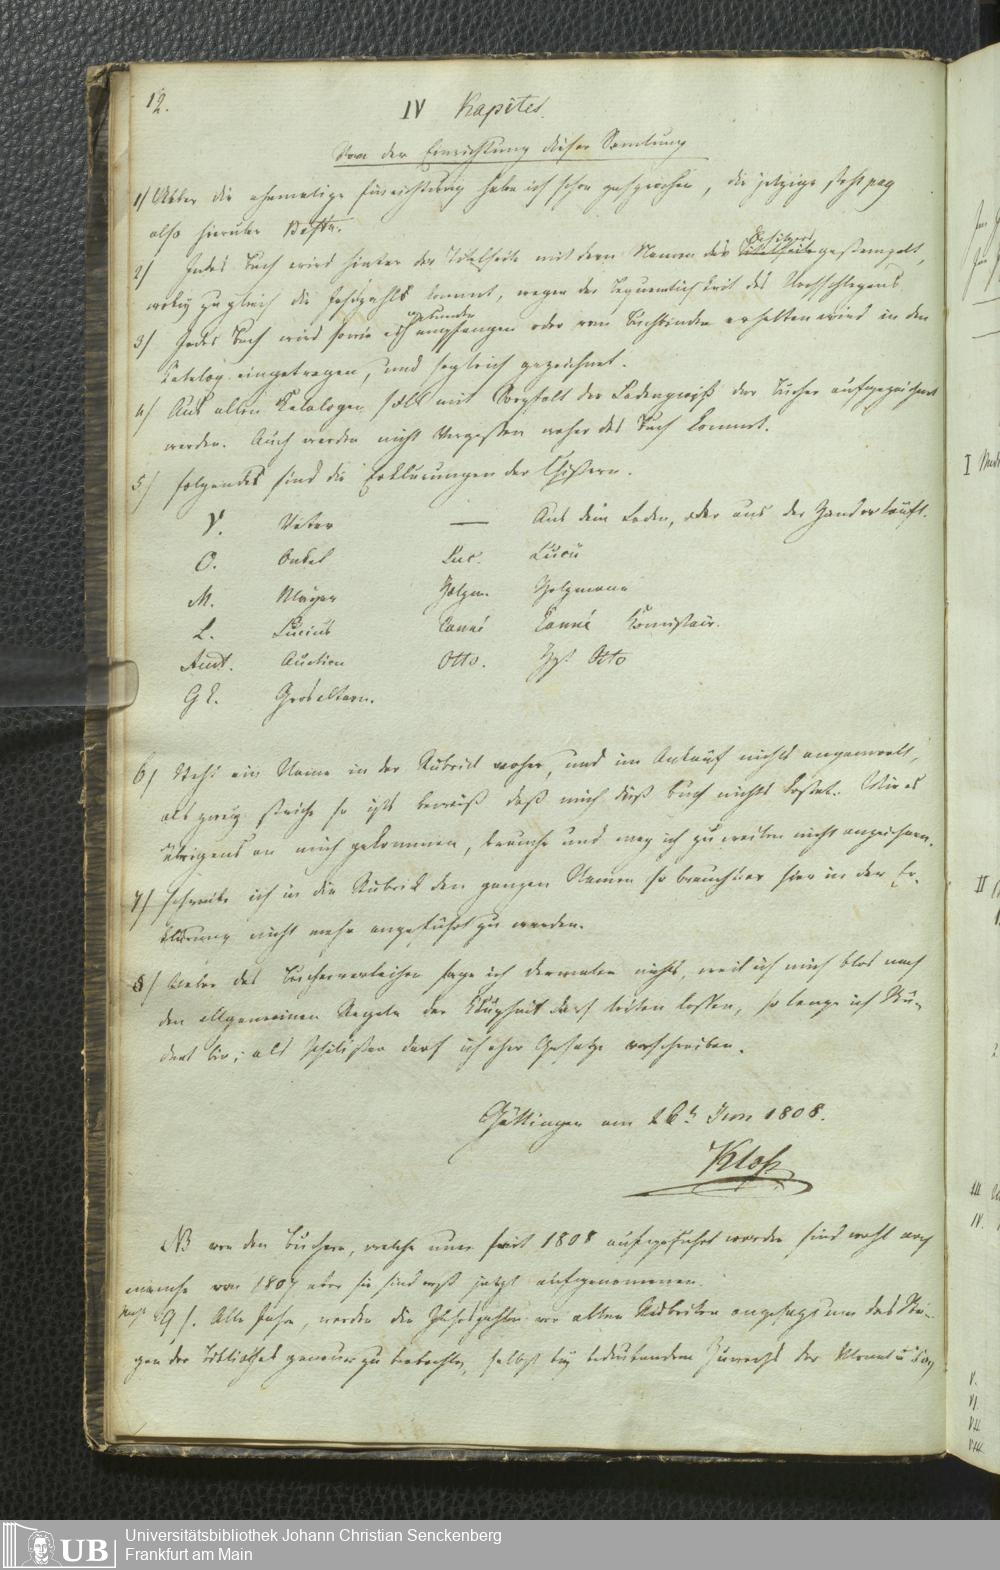 12.
IV Kapitel.
Von der Einrichtung dieser Samlung
1/ Ueber die ehemalige Einrichtung habe ich schon gesprochen, die jetzige steht pag
also hieruber
2/ Jedes Buch wird hinter der Titelseite mit dem Namen des Besitzers gestempelt,
wobey zugleich die Jahrzahl kommt, wegen der Bequemlichkeit des Nachschlagens
3/ Jedes Buch wird sowie ich gebunden empfangen oder vom Buchbinder erhalten wird in den
Katalog eingetragen, und sogleich gezeichnet.
4/ Aus allen Katalogen soll mit Sorgfalt der Ladenpreiß der Bucher aufgezeichnet
werden. Auch werde nicht Vergessen woher das Buch kommt.
5/ folgendes sind die Erklärungen der Chiffern.
V. Vater — Aus dem Laden, oder aus der Hand erkauft.
O. Onkel Luc. Lucü
M. Mayer Holzm. Holzmann
L. Lucius Canné Canné Komissair.
Auct. Auction Otto. Otto
G E. Groseltern.
6/ Steht ein Name in der Rubrik woher, und im Ankauf nichts angemerkt,
als zwey striche so ists beweiß daß mich dieß Buch nichts kostet. Wie es
übrigens an mich gekommen, brauche und mag ich zuweilen nicht anzeichnen.
7/ schreibe ich in die Rubrik den ganzen Namen so braucht er hier in der Er-
klärung nicht mehr angeführt zu werden.
8/ Ueber das Bucherverleihen sage ich dermalen nichts, weil ich mich blos nach
den allgemeinen Regeln der Klugheit darf leiten lassen, so lange ich Stu-
dent bin; als Philister darf ich eher Gesetze vorschreiben.
Göttingen am 26t Jun 1808.
Kloß
NB von den Buchern, welche unter 1808 aufgeführt worden sind wohl auch
manche von 1807 aber sie sind erst jetzt aufgenommen.
9/. Alle Jahr, werden die Jahrszahlen vor allen Rubriken angesagt um das Stei-
gen der Bibliothek genauer zu beobachten, selbst bey bedeutendem Zuwachs der Monat u Tag
I
II
III
IV.
V.
VI.
VII.
VIII.
UB
Universitätsbibliothek Johann Christian Senckenberg
Frankfurt am Main